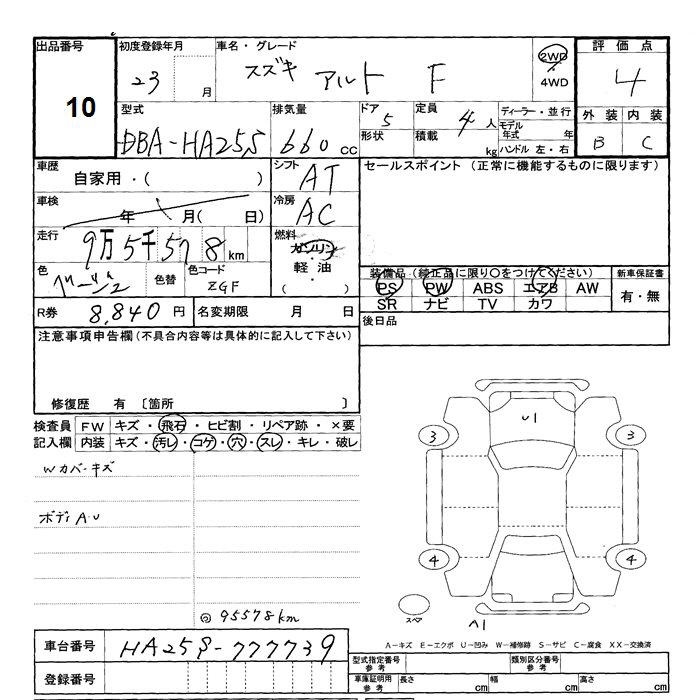 出品番号
10
初度登録年月
23 月
車名・グレード
スズキ アルト F
2WD
4WD
評価点
4
外装 内装
B C
型式
DBA-HA25S
排気量
660 cc
ドア
5
形状
定員
4 人
積載
kg
ディーラー・並行
モデル年式 年
ハンドル 左・右
車歴
自家用・( )
シフト
AT
車検
年 月( 日)
冷房
AC
走行
9万5千578km
燃料
ガソリン
・
軽油
・
( )
色
ベージュ
色替
色コード
ZGF
R券
8,840 円
名変期限 月 日
セールスポイント (正常に機能するものに限ります)
装備品 (純正品に限り○をつけてください)
PS PW ABS エアB AW
SR ナビ TV カワ
新車保証書
有・無
後日品
注意事項申告欄(不具合内容等は具体的に記入して下さい)
修復歴 有 〔箇所 〕
検査員 FW キズ・飛石・ヒビ割・リペア跡・×要
記入欄 内装 キズ・汚レ・コゲ・穴・スレ・キレ・破レ
Wカバーキズ
ボディA.U
95578km
U1
3 3
4 4
スペア
A1
A-キズ E-エクボ U-凹み W-補修跡 S-サビ C-腐食 XX-交換済
車台番号
HA25S-777739
登録番号
型式指定番号
参考
類別区分番号
参考
車庫証明用
参考
長さ cm 幅 cm 高さ cm